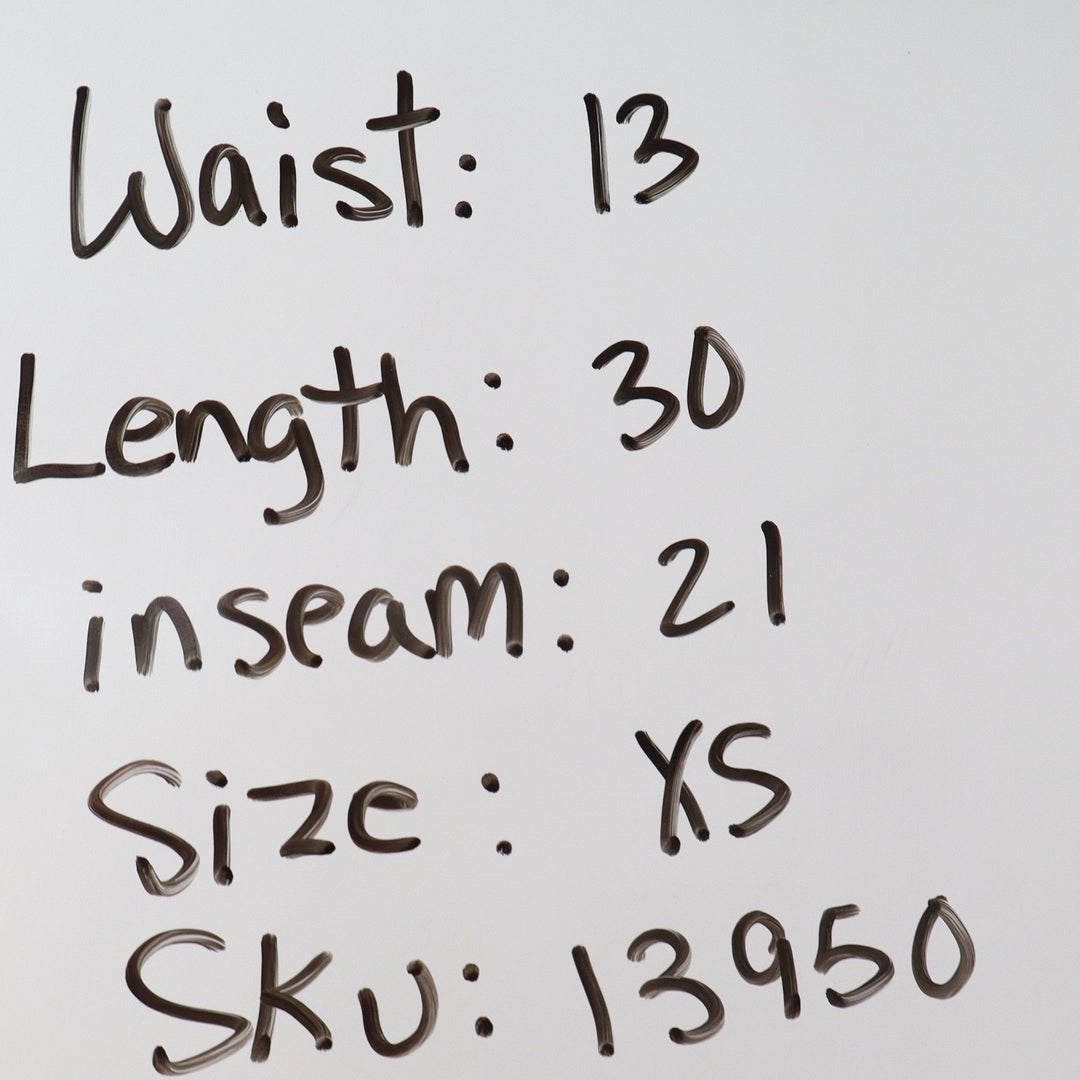 Waist: 13
Length: 30
inseam: 21
Size: XS
SKU: 13950